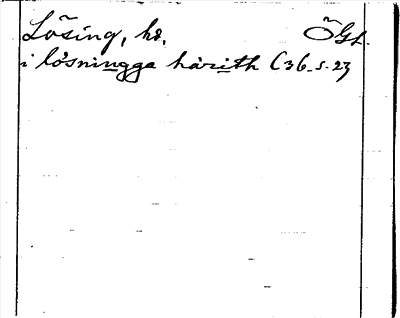 Lösing, hd. ÖGL.
i lősningga hàrith C36_s. 23